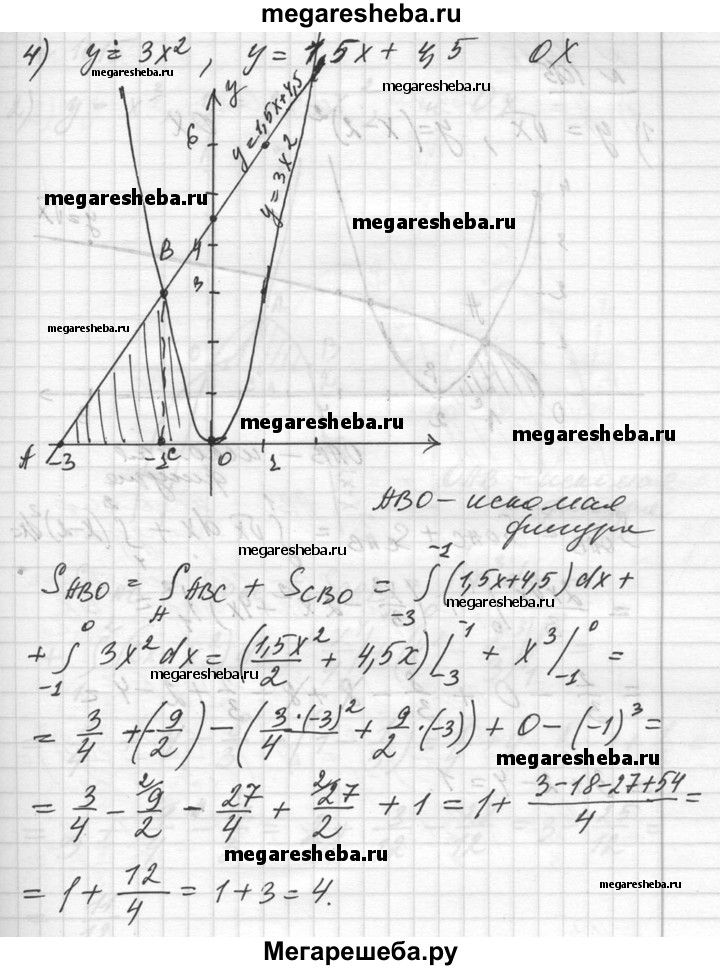 megaresheba.ru
4) y = 3x², y = 1,5x + 4,5 OX
megaresheba.ru
y
y=1,5x+4,5
6
y=3x²
megaresheba.ru
megaresheba.ru
B
4
3
megaresheba.ru
megaresheba.ru
megaresheba.ru
A -3 -1 C 0 1
ABO – искомая
фигура
megaresheba.ru
S_ABO = S_ABC + S_CBO = ∫₋₃⁻¹ (1,5x+4,5) dx +
megaresheba.ru
+ ∫₋₁⁰ 3x² dx = (1,5x²/2 + 4,5x) |₋₃⁻¹ + x³ |₋₁⁰ =
megaresheba.ru
= 3/4 + (-9/2) - (3·(-3)²/4 + 9/2·(-3)) + 0 - (-1)³ =
megaresheba.ru
= 3/4 - 9/2 - 27/4 + 27/2 + 1 = 1 + (3-18-27+54)/4 =
megaresheba.ru
= 1 + 12/4 = 1+3 = 4.
megaresheba.ru
Мегарешеба.ру